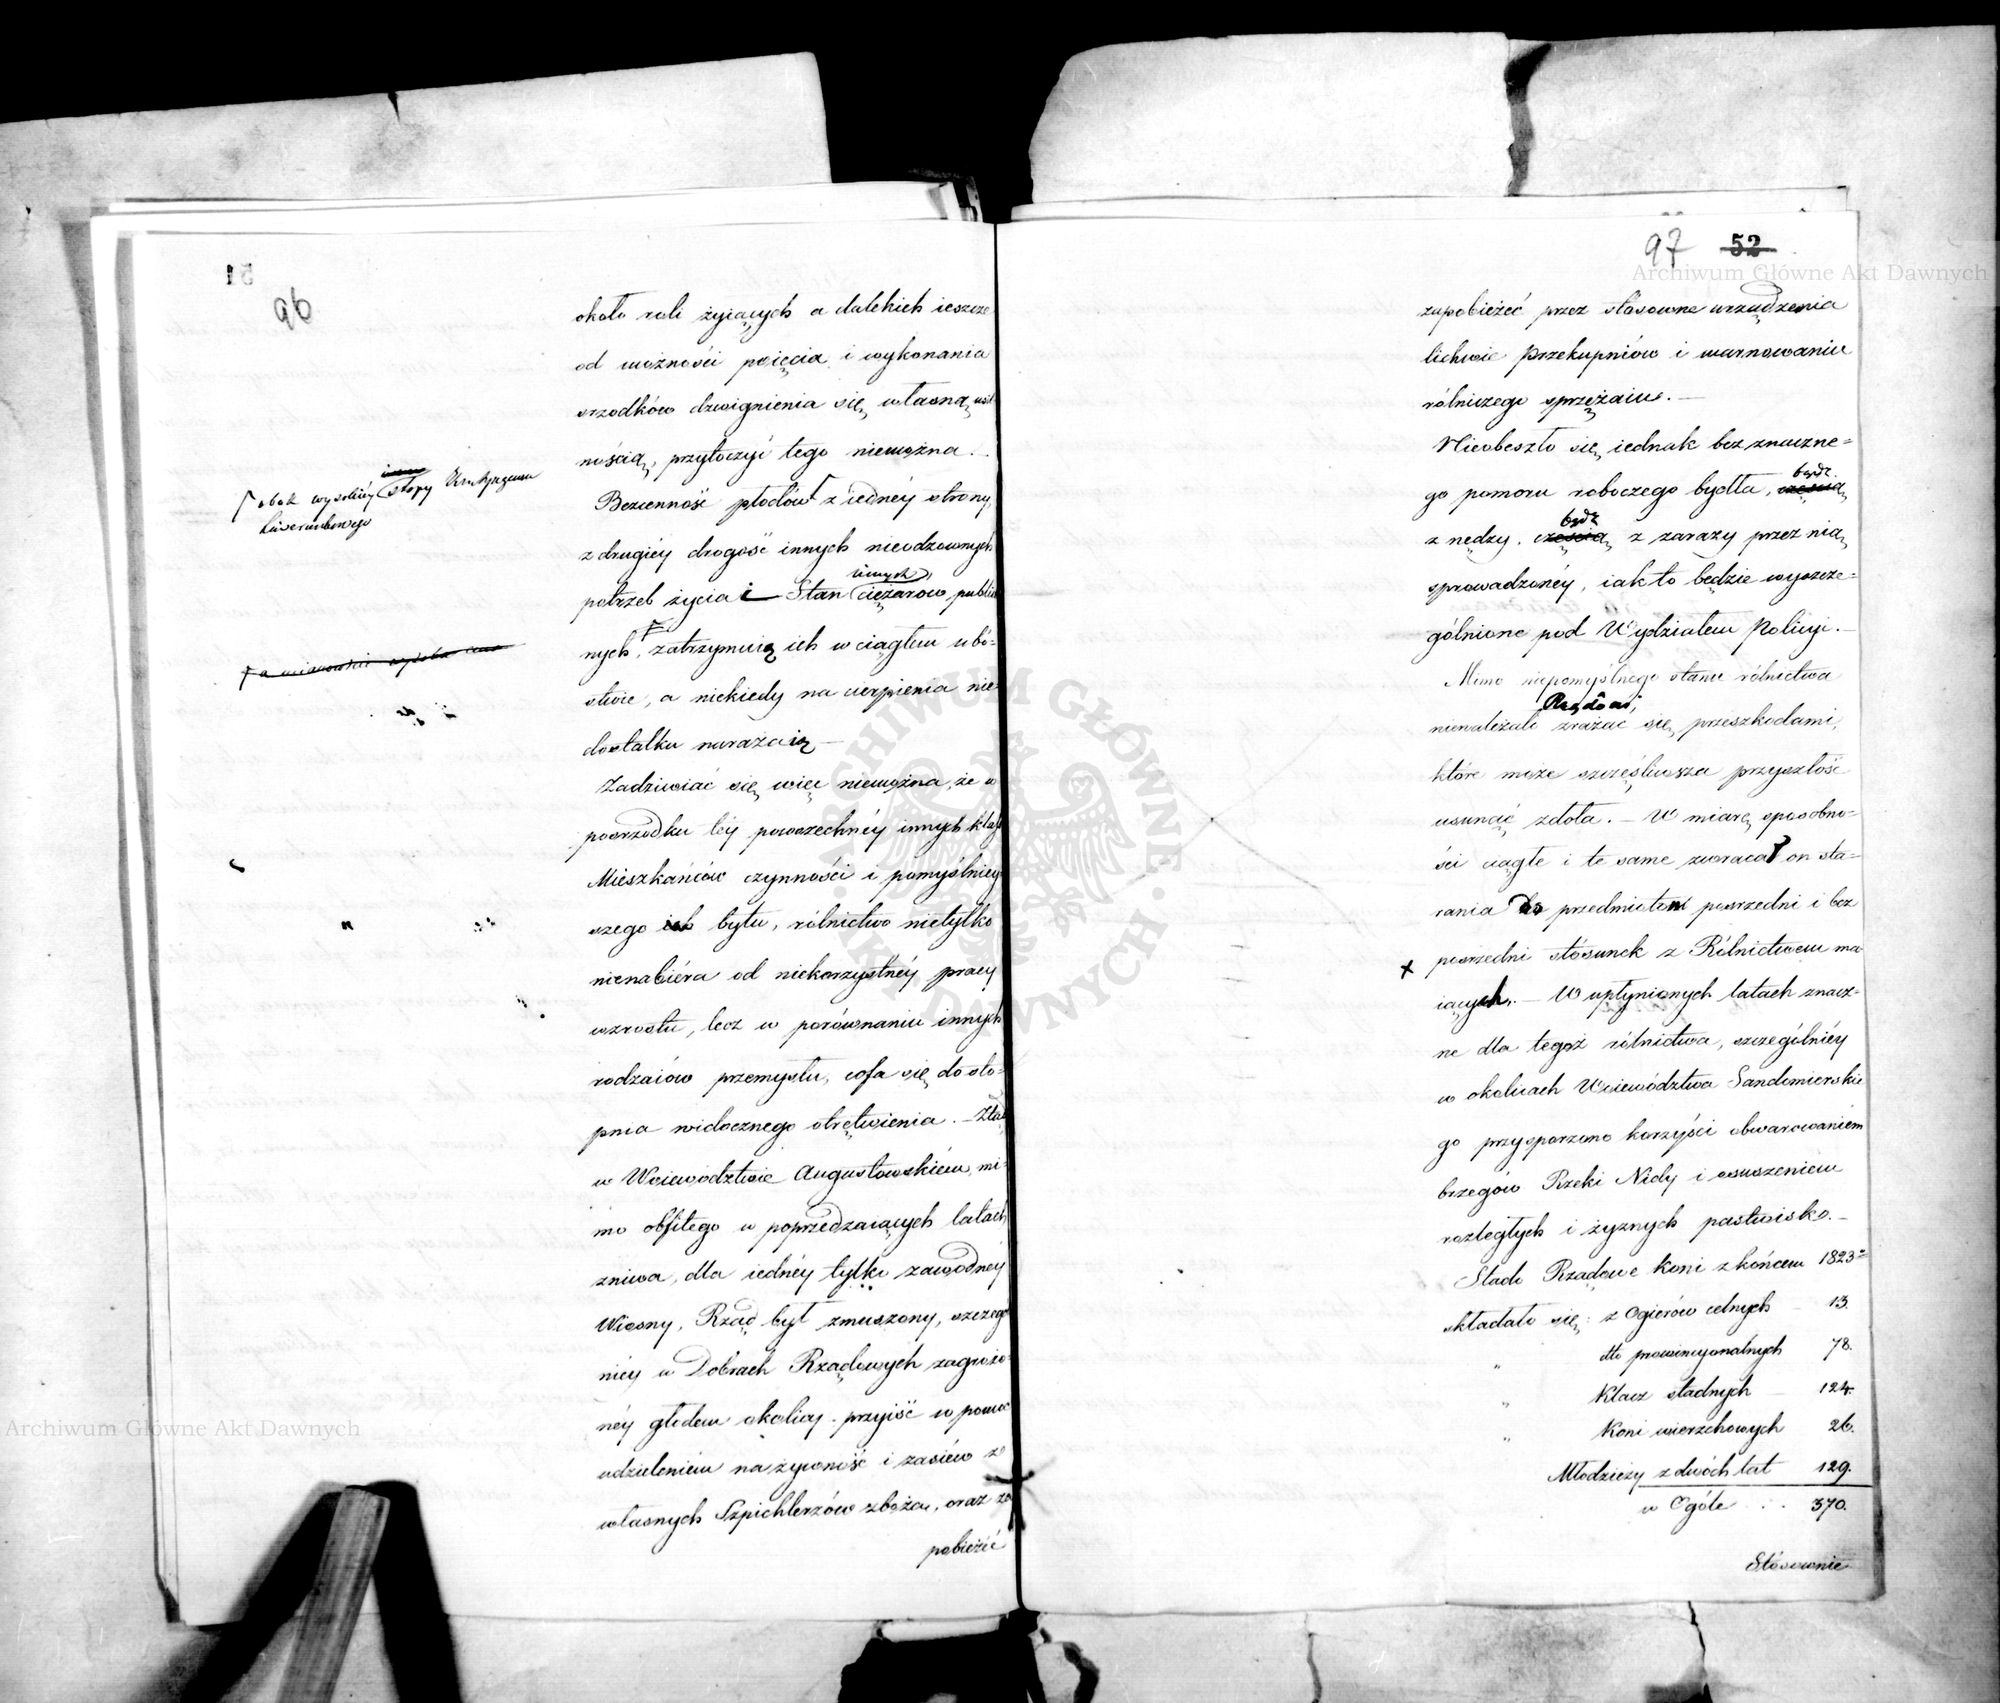 96
około roli żyiących a dalekich ieszcze
od możności poięcia i wykonania
srzodków dzwignienia się własną usil
nością, przytoczyć tego niemożna.
Bezcenność płodów z iednéy strony,
z drugiéy drogość innych nieodzownych
potrzeb życia i Stan innych ciężarów public
nych, zatrzymuią ich w ciągłem ubó-
stwie, a niekiedy na cierpienia nie
dostatku narażaią.—
Zadziwiać się więc niemożna, że w
posrzodku téy powszechnéy innych klass
Mieszkańców czynności i pomyślniey
szego ich bytu, rólnictwo nietylko
nienabiéra od niekorzystnéy pracy
wzrostu, lecz w porównaniu innych
rodzaiów przemysłu, cofa się do sto-
pnia widocznego otrętwienia. —
w Woiewództwie Augustowskiém, mi-
mo obfitego w poprzedzaiących latach
zniwa, dla iednéy tylko zawodnéy
Wiosny, Rząd był zmuszony, szczegó
niéy w Dobrach Rządowych zagrożo-
néy głodem okolicy przyiść w pomoc
udzieleniem na żywność i zasiew z
własnych Szpichlerzów zboża, oraz za
pobieżéć
obok wysokiéy stopy
97 52
zapobieżéć przez stósowne urządzenia
lichwie przekupniów i marnowaniu
rólniczego sprzężaiu. —
Nieobeszło się iednak bez znaczne-
go pomoru roboczego bydła, bądź częścią
z nędzy, bądź częścią z zarazy przez nią
sprowadzonéy, iak to będzie wyszcze-
gólnione pod Wydziałem Policyi. —
Mimo niepomyślnego stanu rólnictwa
nienależało Rządowi zrażać się przeszkodami,
które może szczęśliwsza przyszłość
usunąć zdoła. — W miarę sposobno-
ści ciągłe i te same zwracał on sta-
rania do przedmiotów posrzedni i bez
posrzedni stósunek z Rólnictwem ma
iących. — W upłynionych latach znacz-
ne dla tegoż rólnictwa, szczególniéy
w okolicach Woiewództwa Sandomierskie
go przysporzono korzyści obwarowaniem
brzegów Rzeki Nidy i osuszeniem
rozległych i żyznych pastwisk. —
Stado Rządowe koni z końcem 1823
składało się: z Ogierów celnych — 13.
" dto prowincyonalnych 78.
" Klacz stadnych — 124.
" Koni wierzchowych 26.
Młodzieży z dwóch lat 129.
w Ogóle . . 370.
Stósownie
Archiwum Główne Akt Dawnych
Archiwum Główne Akt Dawnych
ARCHIWUM GŁÓWNE AKT DAWNYCH